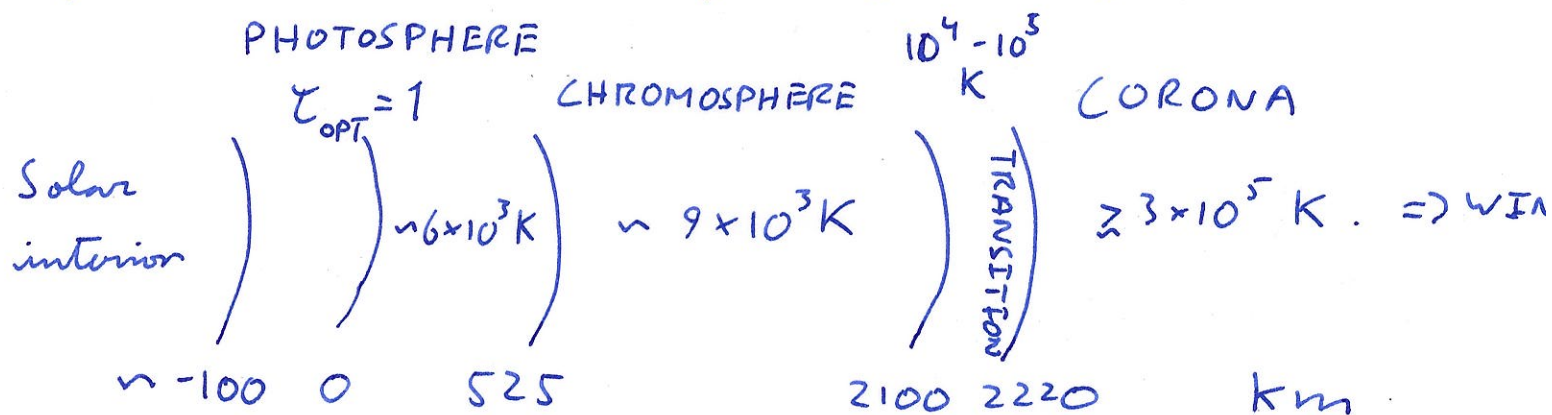 PHOTOSPHERE
10⁴-10⁵
K
τ_OPT = 1
CHROMOSPHERE
CORONA
Solar
interior
~6×10³K
~ 9×10³K
TRANSITION
≳ 3×10⁵ K. => WIN
~ -100 0 525 2100 2220 km